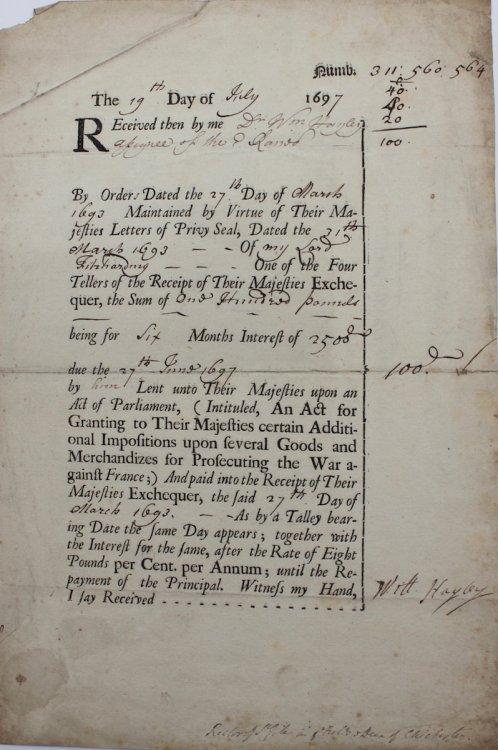 Numb. 311: 560: 564
40.
The 19th Day of July 1697 40.
REceived then by me Dr Wm Hayley 20
assignee of the 100.
By Orders Dated the 27th Day of March
1693 Maintained by Virtue of Their Ma-
jeſties Letters of Privy Seal, Dated the 31th
March 1693 — — Of my Lord
Fitzharding — One of the Four
Tellers of the Receipt of Their Majeſties Exche-
quer, the Sum of One Hundred pounds
being for Six Months Intereſt of 2500
due the 27th June 1697 100
by him Lent unto Their Majeſties upon an
Act of Parliament, (Intituled, An Act for
Granting to Their Majeſties certain Additi-
onal Impoſitions upon ſeveral Goods and
Merchandizes for Proſecuting the War a-
gainſt France;) And paid into the Receipt of Their
Majeſties Exchequer, the ſaid 27th Day of
March 1693. — — As by a Talley bear-
ing Date the ſame Day appears; together with
the Intereſt for the ſame, after the Rate of Eight
Pounds per Cent. per Annum; until the Re-
payment of the Principal. Witneſs my Hand,
I ſay Received - - - - - - - - - - - - - - Will Hayley
Rector of St Giles in ye Fields & Dean of Chichester